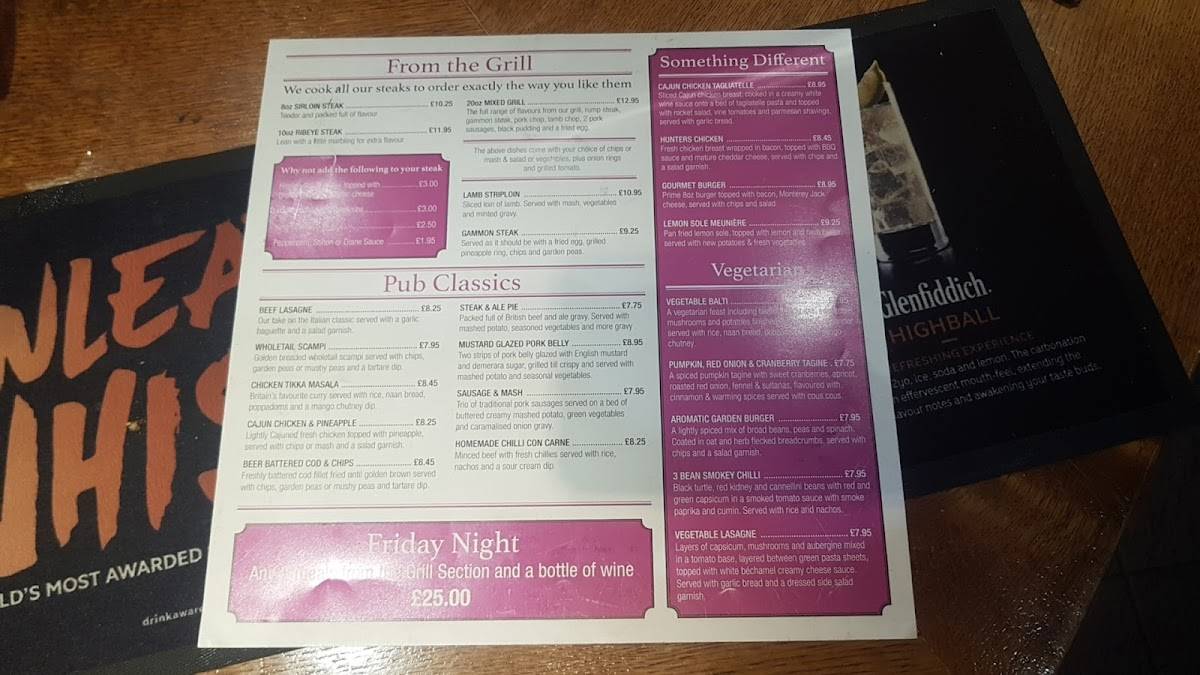 From the Grill
We cook all our steaks to order exactly the way you like them
8oz SIRLOIN STEAK £10.25
Tender and packed full of flavour
10oz RIBEYE STEAK £11.95
Lean with a little marbling for extra flavour
Why not add the following to your steak
topped with £3.00
cheese
£3.00
£2.50
Peppercorn, Stilton or Diane Sauce £1.95
20oz MIXED GRILL £12.95
The full range of flavours from our grill, rump steak,
gammon steak, pork chop, lamb chop, 2 pork
sausages, black pudding and a fried egg.
The above dishes come with your choice of chips or
mash & salad or vegetables, plus onion rings
and grilled tomato.
LAMB STRIPLOIN £10.95
Sliced loin of lamb. Served with mash, vegetables
and minted gravy.
GAMMON STEAK £9.25
Served as it should be with a fried egg, grilled
pineapple ring, chips and garden peas.
Pub Classics
BEEF LASAGNE £8.25
Our take on the Italian classic served with a garlic
baguette and a salad garnish.
WHOLETAIL SCAMPI £7.95
Golden breaded wholetail scampi served with chips,
garden peas or mushy peas and a tartare dip.
CHICKEN TIKKA MASALA £8.45
Britain's favourite curry served with rice, naan bread,
poppadoms and a mango chutney dip.
CAJUN CHICKEN & PINEAPPLE £8.25
Lightly Cajuned fresh chicken topped with pineapple,
served with chips or mash and a salad garnish.
BEER BATTERED COD & CHIPS £8.45
Freshly battered cod fillet fried until golden brown served
with chips, garden peas or mushy peas and tartare dip.
STEAK & ALE PIE £7.75
Packed full of British beef and ale gravy. Served with
mashed potato, seasoned vegetables and more gravy
MUSTARD GLAZED PORK BELLY £8.95
Two strips of pork belly glazed with English mustard
and demerara sugar, grilled till crispy and served with
mashed potato and seasonal vegetables.
SAUSAGE & MASH £7.95
Trio of traditional pork sausages served on a bed of
buttered creamy mashed potato, green vegetables
and caramalised onion gravy.
HOMEMADE CHILLI CON CARNE £8.25
Minced beef with fresh chillies served with rice,
nachos and a sour cream dip.
Friday Night
Grill Section and a bottle of wine
£25.00
Something Different
CAJUN CHICKEN TAGLIATELLE £8.95
Sliced Cajun chicken breast, cooked in a creamy white
wine sauce onto a bed of tagliatelle pasta and topped
with rocket salad, vine tomatoes and parmesan shavings,
served with garlic bread.
HUNTERS CHICKEN £8.45
Fresh chicken breast wrapped in bacon, topped with BBQ
sauce and mature cheddar cheese, served with chips and
a salad garnish.
GOURMET BURGER £8.95
Prime 8oz burger topped with bacon, Monterey Jack
cheese, served with chips and salad
LEMON SOLE MEUNIÈRE £9.25
Pan fried lemon sole, topped with lemon and
served with new potatoes & fresh vegetables
Vegetarian
VEGETABLE BALTI
A vegetarian feast including
mushrooms and potatoes
served with rice, naan bread,
chutney.
PUMPKIN, RED ONION & CRANBERRY TAGINE . £7.75
A spiced pumpkin tagine with sweet cranberries, apricot,
roasted red onion, fennel & sultanas, flavoured with
cinnamon & warming spices served with cous cous.
AROMATIC GARDEN BURGER £7.95
A lightly spiced mix of broad beans, peas and spinach.
Coated in oat and herb flecked breadcrumbs, served with
chips and a salad garnish.
3 BEAN SMOKEY CHILLI £7.95
Black turtle, red kidney and cannellini beans with red and
green capsicum in a smoked tomato sauce with smoke
paprika and cumin. Served with rice and nachos.
VEGETABLE LASAGNE £7.95
Layers of capsicum, mushrooms and aubergine mixed
in a tomato base, layered between green pasta sheets,
topped with white béchamel creamy cheese sauce.
Served with garlic bread and a dressed side salad
garnish.
NLEA
WHIS
LD'S MOST AWARDED
drinkaware
Glenfiddich.
HIGHBALL
EFRESHING EXPERIENCE
2yo, ice, soda and lemon. The carbonation
effervescent mouth-feel, extending the
avour notes and awakening your taste buds.